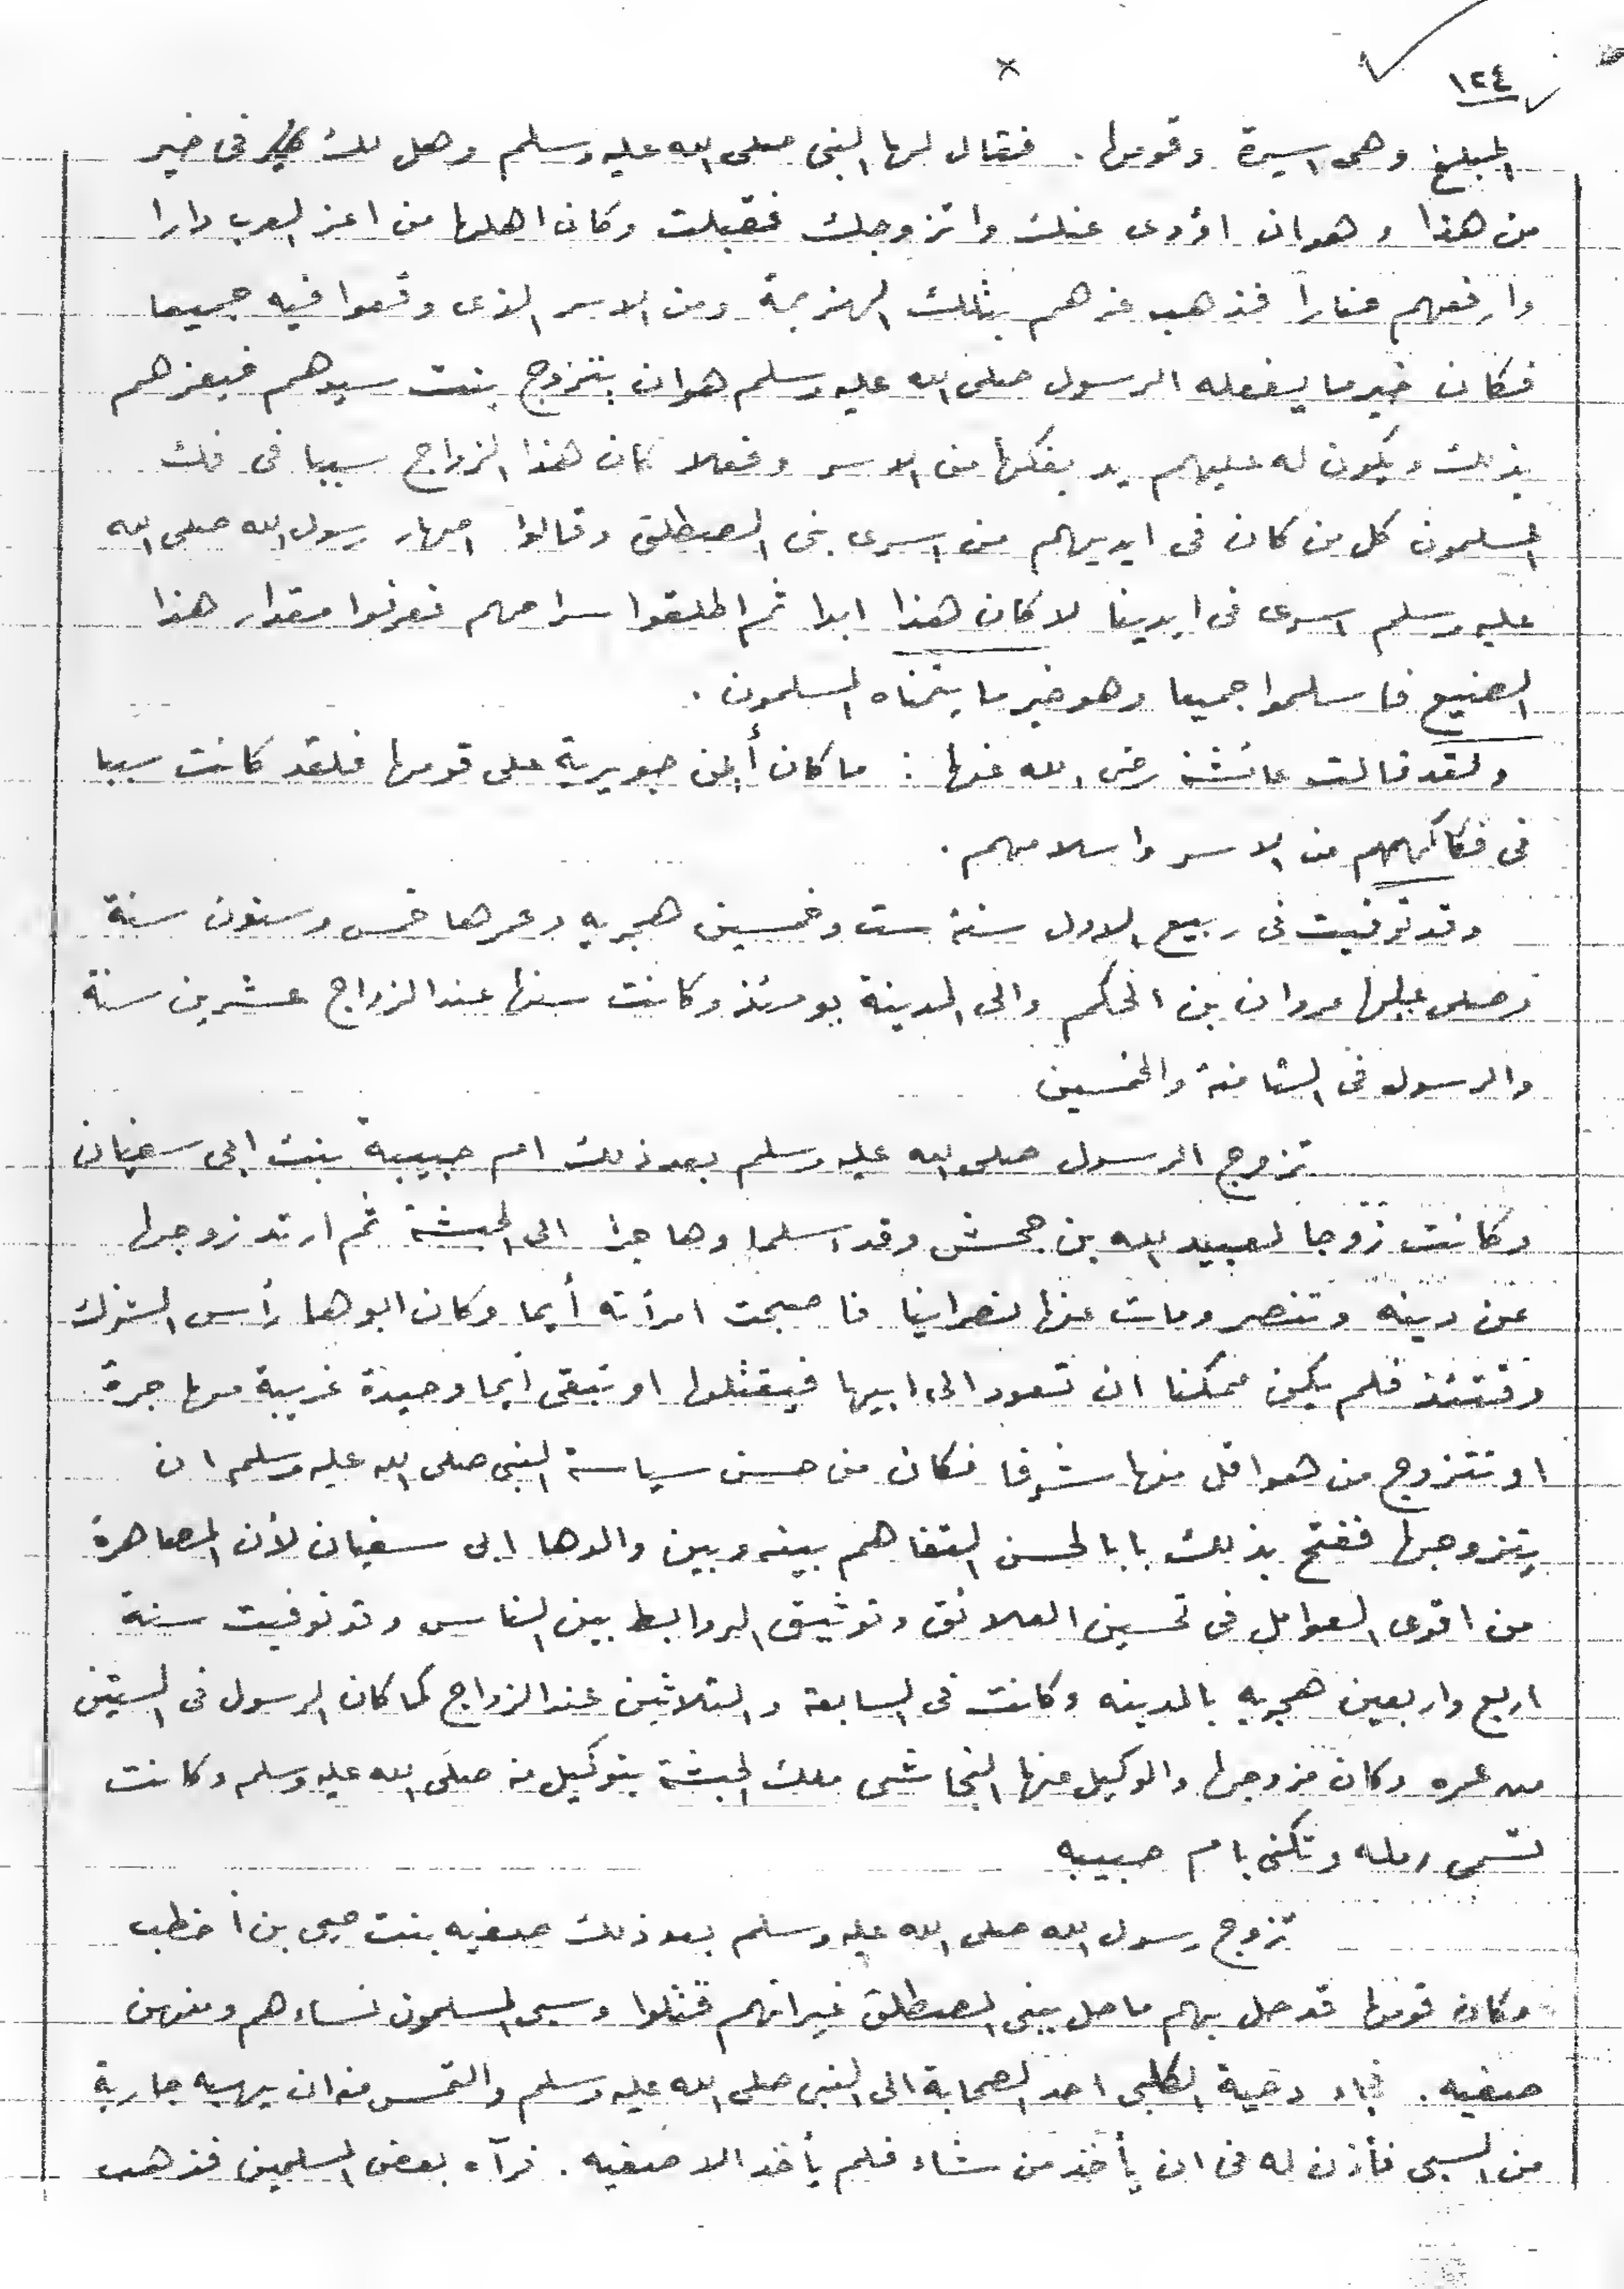 ١٢٤
المبلغ وهى اسيرة وقومها . فقال لها النبى صلى الله عليه وسلم وهل لك فى خير
من هذا وهو ان اؤدى عنك واتزوجك فقبلت وكان اهلها من اعز العرب دارا
وارفعهم منارا فذهب عزهم بتلك الهزيمة ومن الاسر الذى وقعوا فيه جميعا
فكان خير ما يفعله الرسول صلى الله عليه وسلم هو ان يتزوج بنت سيدهم فيعزهم
بذلك ويكون له عليهم يد بفكها من الاسر وفعلا كان هذا الزواج سببا فى فك
المسلمون كل من كان فى ايديهم من اسرى بنى المصطلق وقالوا اصهار رسول الله صلى الله
عليه وسلم اسرى فى ايدينا لا كان هذا ابدا ثم اطلقوا سراحهم فعرفوا مقدار هذا
الصنيع فاسلموا جميعا وهو خير ما يتمناه المسلمون .
ولقد قالت عائشة رضى الله عنها : ما كان أيمن جويرية على قومها فلقد كانت سببا
فى فكاكهم من الاسر واسلامهم .
وقد توفيت فى ربيع الاول سنة ست وخمسين هجريه وعمرها خمس وستون سنة
وصلى عليها مروان بن الحكم والى المدينة يومئذ وكانت سنها عند الزواج عشرين سنة
والرسول فى الثامنة والخمسين
تزوج الرسول صلى الله عليه وسلم بعد ذلك ام حبيبة بنت ابى سفيان
وكانت زوجا لعبيد الله بن جحش وقد اسلما وهاجرا الى الحبشة ثم ارتد زوجها
عن دينه وتنصر ومات عنها نصرانيا فاصبحت امرأته أيما وكان ابوها رأس الشرك
وقتئذ فلم يكن ممكنا ان تعود الى ابيها فيقتلها او تبقى أيما وحيدة غريبة مهاجرة
او تتزوج من هو اقل منها شرفا فكان من حسن سياسة النبى صلى الله عليه وسلم ان
يتزوجها ففتح بذلك بابا لحسن التفاهم بينه وبين والدها ابى سفيان لأن المصاهرة
من اقوى العوامل فى تحسين العلائق وتوثيق الروابط بين الناس وقد توفيت سنة
اربع واربعين هجريه بالمدينه وكانت فى السابعة والثلاثين عند الزواج كما كان الرسول فى الستين
من عمره وكان مزوجها والوكيل عنها النجاشى ملك الحبشة بتوكيل منه صلى الله عليه وسلم وكانت
تسمى رمله وتكنى بام حبيبه
تزوج رسول الله صلى الله عليه وسلم بعد ذلك صفيه بنت حيى بن أخطب
وكان قومها قد حل بهم ما حل ببنى المصطلق غير انهم قتلوا وسبى المسلمون نساءهم ومنهن
صفيه . فجاء دحية الكلبى احد الصحابة الى النبى صلى الله عليه وسلم والتمس منه ان يهبه جارية
من السبى فأذن له فى ان يأخذ من شاء فلم يأخذ الا صفيه . فرآه بعض المسلمين فذهب